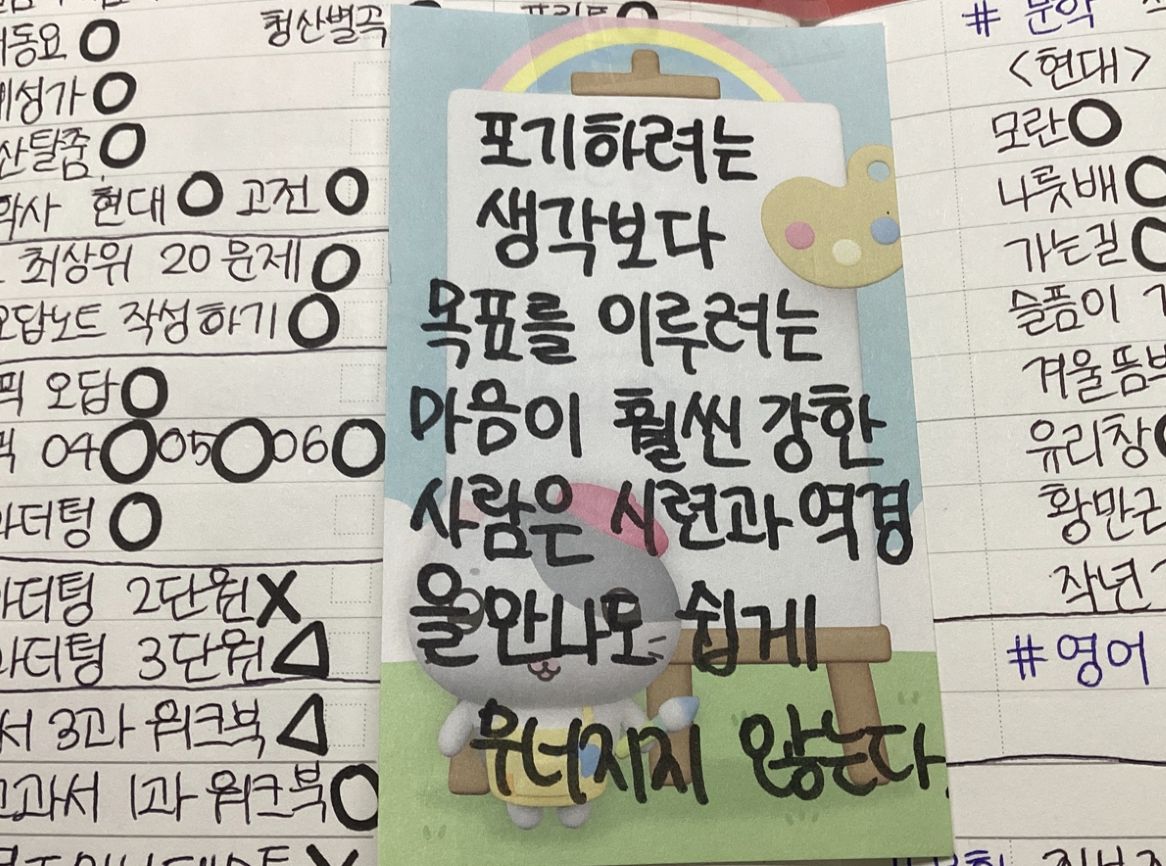 청산별곡
현대 O 고전 O
최상위 20문제 O
오답노트 작성하기 O
오답 O
04 O 05 O 06 O
2단원 X
3단원 △
3과 워크북 △
교과서 1과 워크북 O
포기하려는
생각보다
목표를 이루려는
마음이 훨씬 강한
사람은 시련과 역경
을 만나도 쉽게
무너지지 않는다.
# 문학
<현대>
모란 O
나룻배 O
가는길 O
슬픔이
겨울
유리창
황만근
작년
# 영어